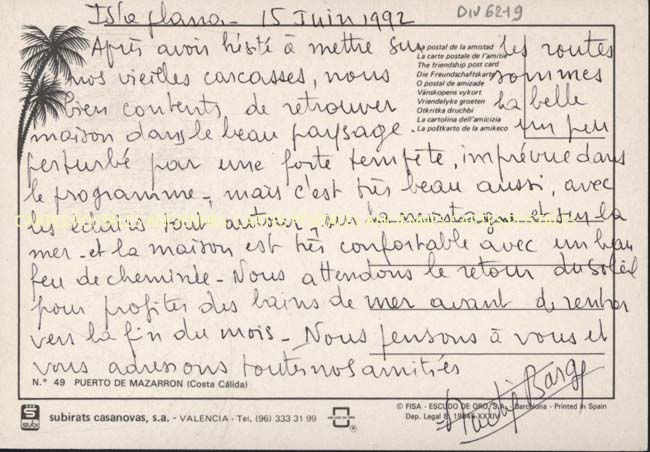 Isla plana - 15 Juin 1992
DIV 6219
Après avoir hésité à mettre sur les routes
nos vieilles carcasses, nous sommes
bien contents de retrouver la belle
maison dans le beau paysage - un peu
perturbé par une forte tempête, imprévue dans
le programme -, mais c'est très beau aussi, avec
les éclairs tout autour, sur la montagne et sur la
mer - et la maison est très confortable avec un beau
feu de cheminée - Nous attendons le retour du soleil
pour profiter des bains de mer avant de rentrer
vers la fin du mois - Nous pensons à vous et
vous adressons toutes nos amitiés
La postal de la amistad
La carte postale de l'amitié
The friendship post card
Die Freundschaftskarte
O postal de amizade
Vänskapens vykort
Vriendelyke groeten
Otkritka druchbi
La cartolina dell'amicizia
La poŝtkarto de la amikeco
N.º 49 PUERTO DE MAZARRON (Costa Cálida)
subi
subirats casanovas, s.a. - VALENCIA - Tel. (96) 333 31 99
ESCUDO DE ORO
© FISA - ESCUDO DE ORO, S.A. - Barcelona - Printed in Spain
Dep. Legal B.
XXXIV
Barge